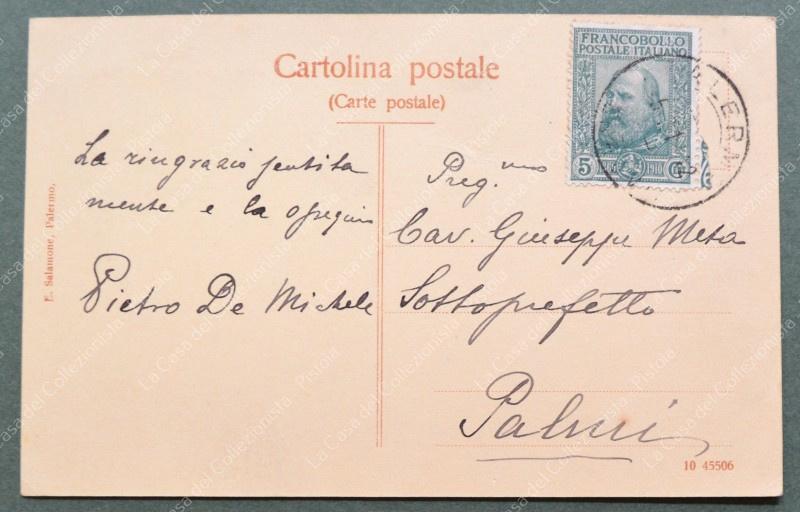 Cartolina postale
(Carte postale)
FRANCOBOLLO
POSTALE ITALIANO
5 1910
PALERMO
La ringrazio sentita
mente e la ossequio
Pietro De Michele
Preg.mo
Cav. Giuseppe Meta
Sottoprefetto
Palmi
E. Salamone, Palermo.
10 45506
La Casa del Collezionista - Pistoia